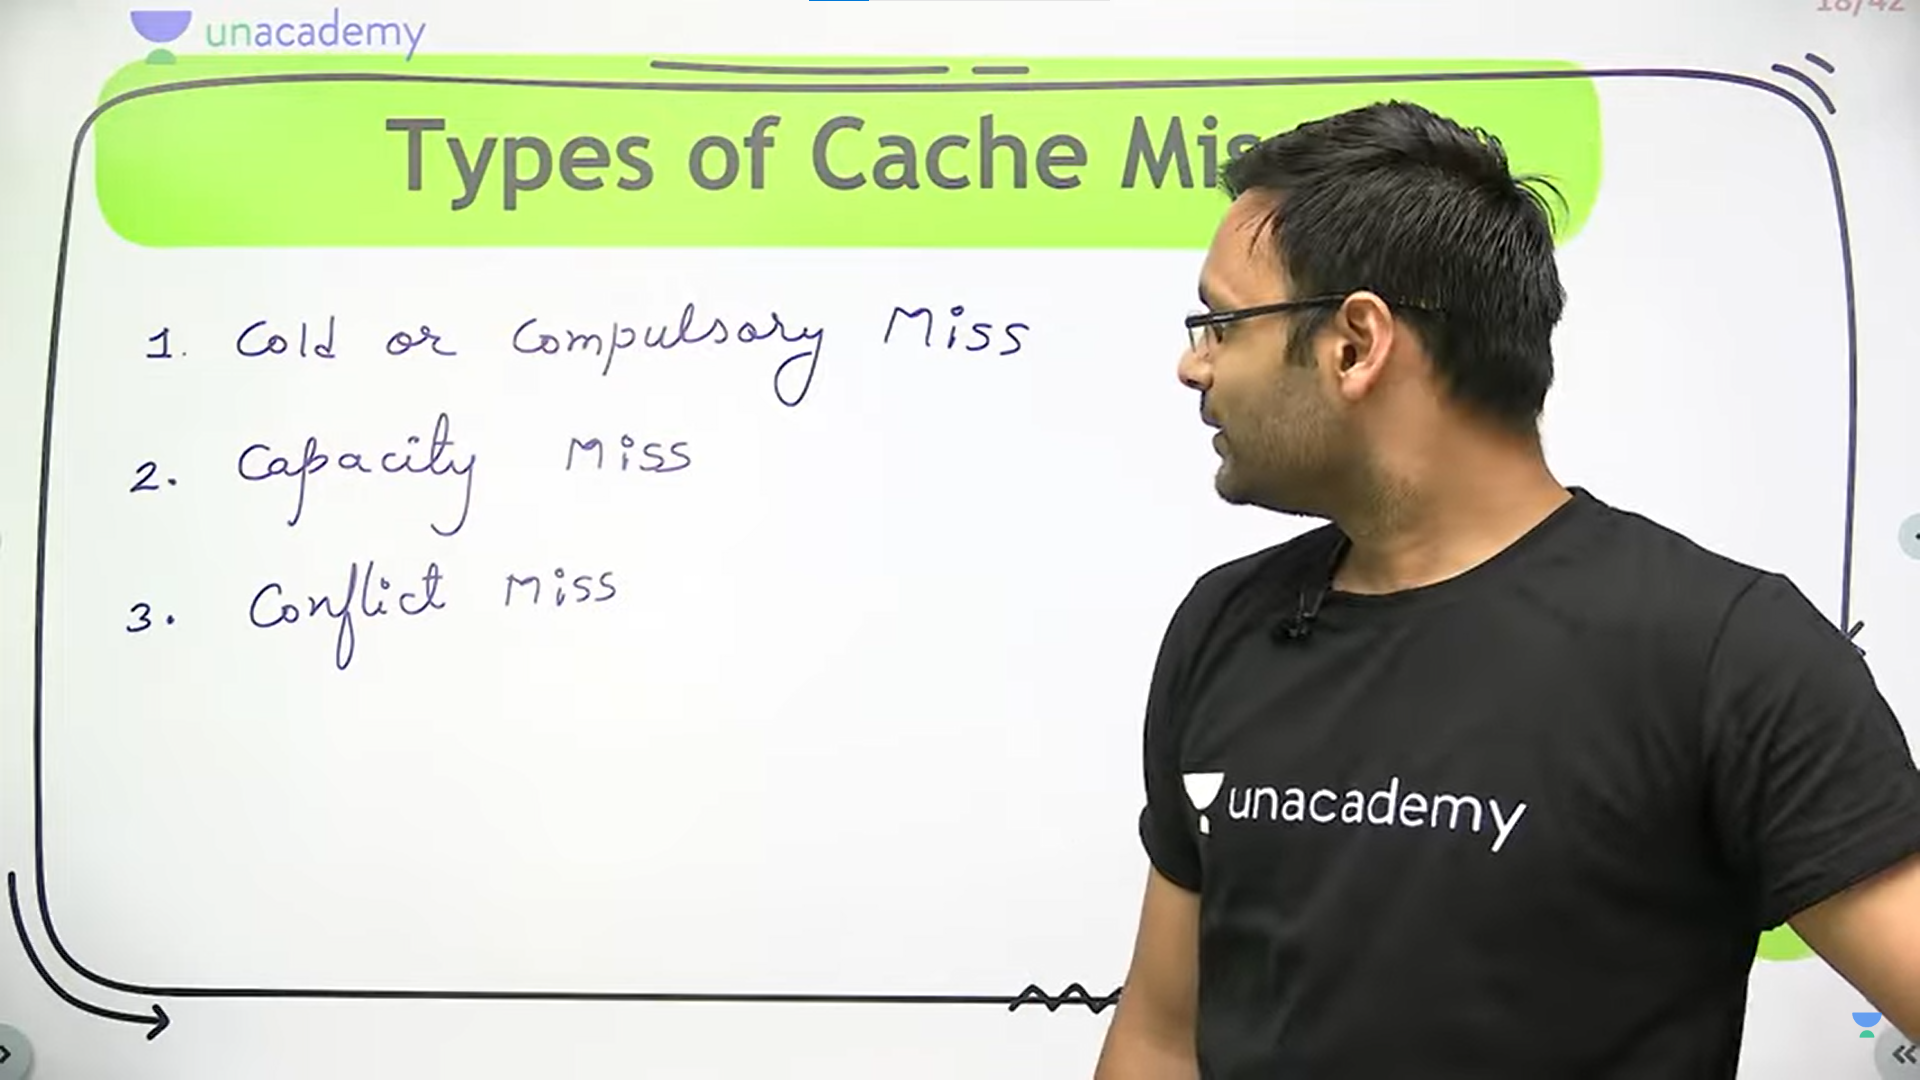 18/42
unacademy
Types of Cache Mis
1. Cold or Compulsory Miss
2. Capacity Miss
3. Conflict Miss
unacademy